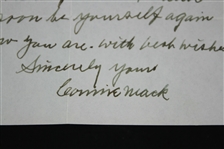 soon be yourself again
you are. with best wishes
Sincerely yours
Connie Mack